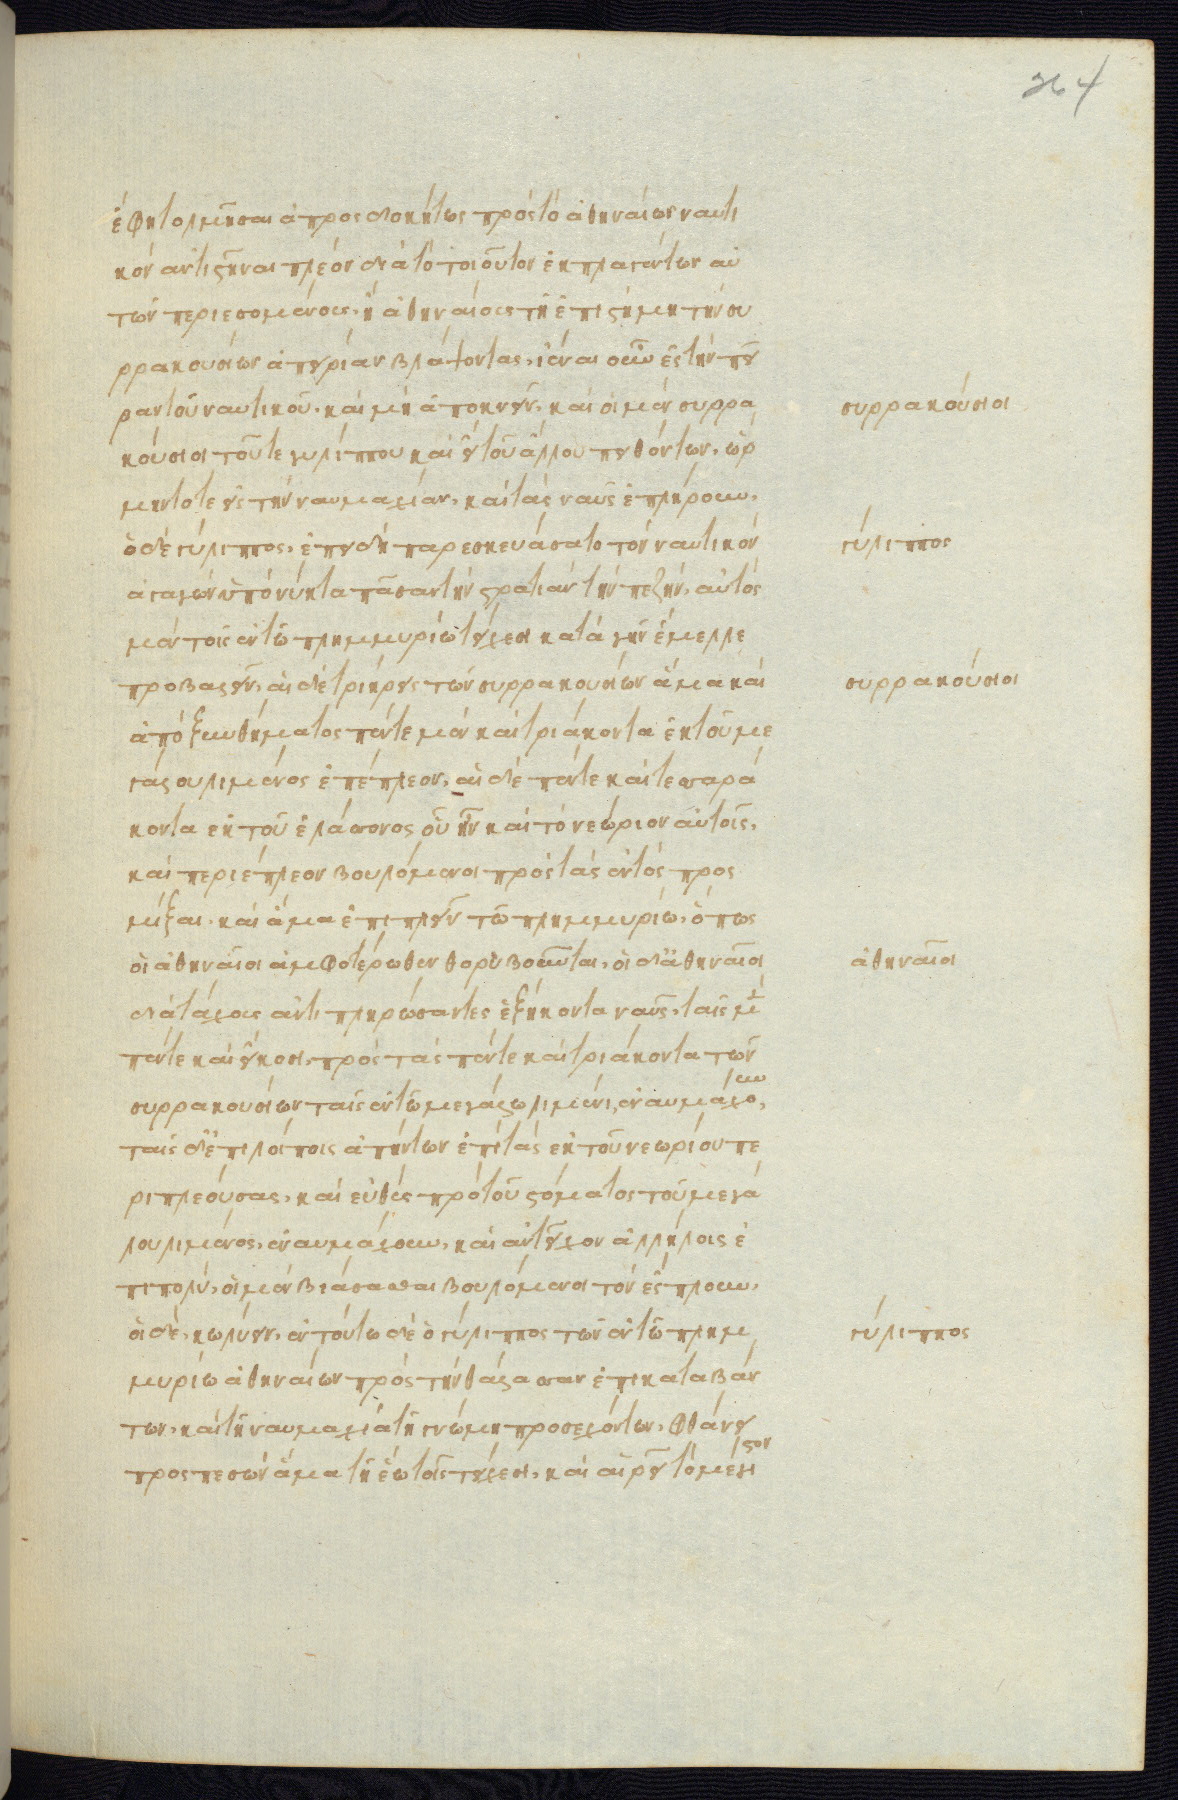 264
ἔφη τολμῆσαι ἀπροσδοκήτως πρὸς τὸ ἀθηναίων ναυτι
κὸν ἀντιστῆναι πλέον διὰ τὸ τοιοῦτον ἐκπλαγέντων αὐ
τῶν περιεσομένους, ἢ ἀθηναίους τῇ ἐπιστήμη τὴν συ
ρρακουσίων ἀπειρίαν βλάψοντας, ἰέναι οὖν ἐς τὴν πεῖ
ραν τοῦ ναυτικοῦ. καὶ μὴ ἀποκνεῖν, καὶ οἱ μὲν συρρα
συρρακούσιοι
κούσιοι τοῦ τε γυλίππου καὶ εἴ του ἄλλου πειθόντων, ὥρ
μηντό τε εἰς τὴν ναυμαχίαν, καὶ τὰς ναῦς ἐπλήρουν.
ὁ δὲ γύλιππος, ἐπειδὴ παρεσκευάσατο τὸν ναυτικὸν
γύλιππος
ἀγαγὼν ὑπὸ νύκτα πᾶσαν τὴν στρατιὰν τὴν πεζὴν, αὐτὸς
μὲν τοῖς ἐν τῶ πλημμυρίω τείχεσι κατὰ γῆν ἔμελλε
προβαλεῖν, αἱ δὲ τριήρεις τῶν συρρακουσίων ἅμα καὶ
συρρακούσιοι
ἀπὸ ξυνθήματος πέντε μὲν καὶ τριάκοντα ἐκ τοῦ με
γάλου λιμένος ἐπέπλεον, αἱ δὲ πέντε καὶ τεσσαρά
κοντα ἐκ τοῦ ἐλάσσονος οὗ ἦν καὶ τὸ νεώριον αὐτοῖς,
καὶ περιέπλεον βουλόμενοι πρὸς τὰς ἐντὸς προς
μίξαι. καὶ ἅμα ἐπιπλεῖν τῶ πλημμυρίω, ὅπως
οἱ ἀθηναῖοι ἀμφοτέρωθεν θορυβοῦνται, οἱ δ' ἀθηναῖοι
ἀθηναῖοι
διὰ τάχους ἀντιπληρώσαντες ἑξήκοντα ναῦς, ταῖς μὲν
πέντε καὶ εἴκοσι, πρὸς τὰς πέντε καὶ τριάκοντα τῶν
συρρακουσίων ταῖς ἐν τῶ μεγάλω λιμένι, ἐναυμάχουν,
ταῖς δ' ἐπιλοίποις ἀπήντων ἐπὶ τὰς ἐκ τοῦ νεωρίου πε
ριπλεούσας, καὶ εὐθὺς πρὸ τοῦ στόματος τοῦ μεγά
λου λιμένος, ἐναυμάχουν, καὶ ἀντεῖχον ἀλλήλοις ἐ
πιπολὺ, οἱ μὲν βιάσασθαι βουλόμενοι τὸν ἔσπλουν,
οἱ δὲ, κωλύειν, ἐν τούτω δὲ ὁ γύλιππος τῶν ἐν τῶ πλημ
γύλιππος
μυρίω ἀθηναίων πρὸς τὴν θάλασσαν ἐπικαταβάν
των, καὶ τῆ ναυμαχία τῆ γνώμη προσεχόντων, φθάνει
προσπεσὼν ἅμα τῆ ἕω τοῖς τείχεσι, καὶ αἱρεῖ τὸ μέγιστον